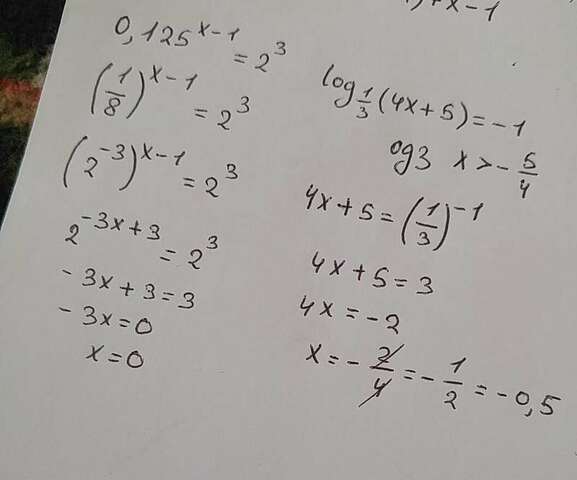 +x-1
0,125^{x-1} = 2^3
(1/8)^{x-1} = 2^3
(2^{-3})^{x-1} = 2^3
2^{-3x+3} = 2^3
-3x+3=3
-3x=0
x=0
log_{1/3}(4x+5)=-1
ОДЗ x>-5/4
4x+5=(1/3)^{-1}
4x+5=3
4x=-2
x=-2/4=-1/2=-0,5